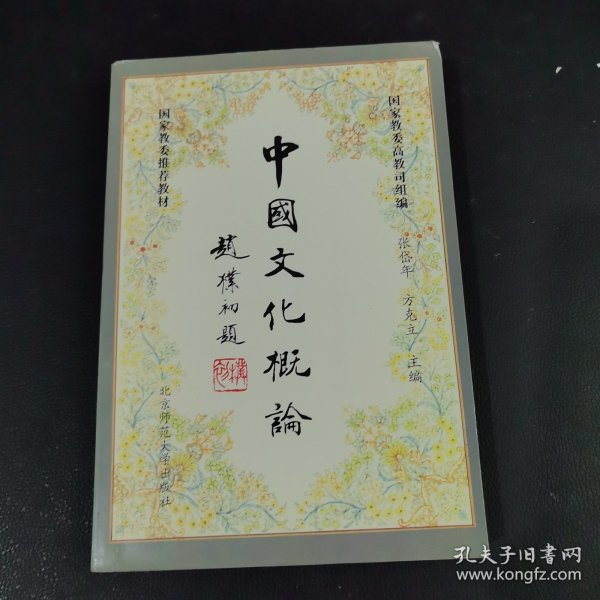 国家教委高教司组编
张岱年 方克立 主编
中國文化概論
趙樸初題
樸初
国家教委推荐教材
北京师范大学出版社
孔夫子旧書网
www.kongfz.com